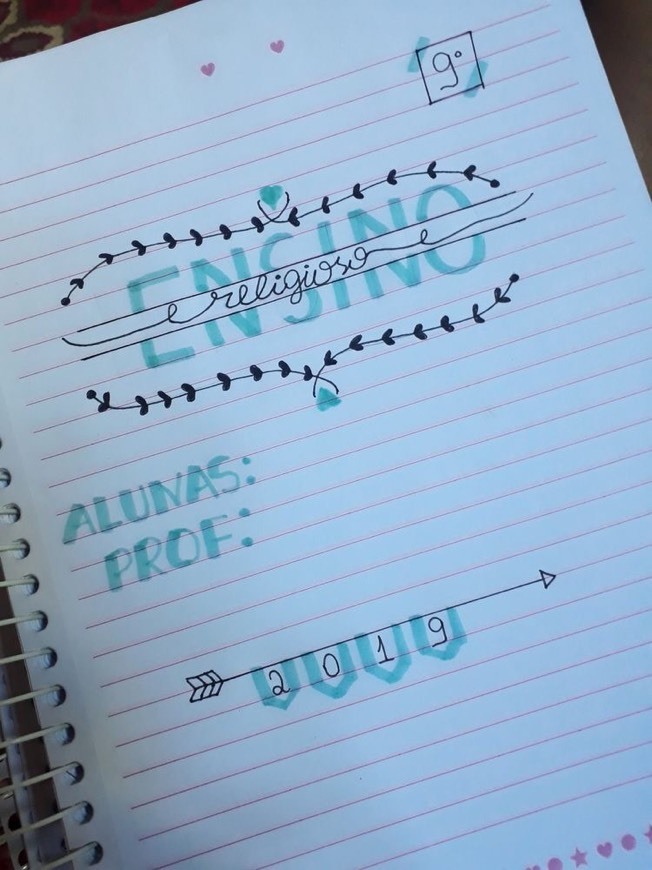 9°
ENSINO
religioso
ALUNAS:
PROF:
2019